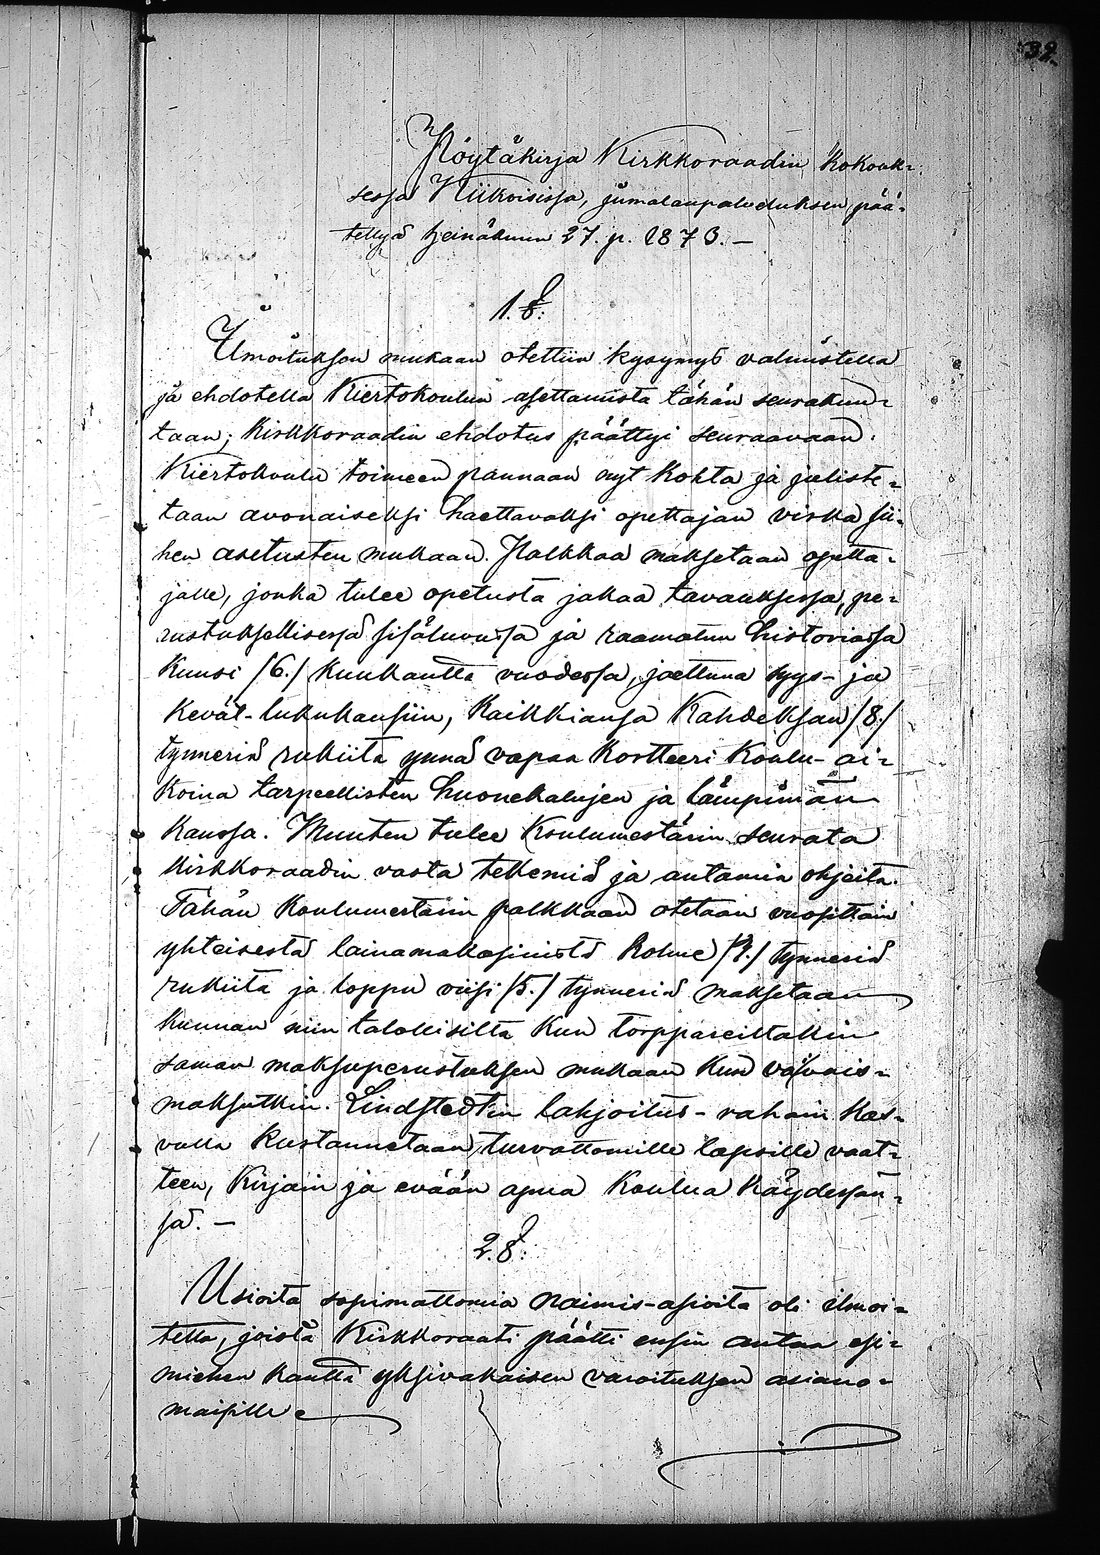 39.
Pöytäkirja Kirkkoraadin kokouk-
sessa Kiikoisissa, jumalanpalveluksen pää-
tettyä heinäkuun 27. p. 1873. —
1. §:
Ilmoituksen mukaan otettiin kysymys valmistella
ja ehdotella Kiertokoulun asettamista tähän seurakun-
taan; Kirkkoraadin ehdotus päättyi seuraavaan.
Kiertokoulu toimeen pannaan nyt kohta ja juliste-
taan avonaiseksi haettavaksi opettajan virka sii-
hen asetusten mukaan. Palkkaa maksetaan opetta-
jalle, jonka tulee opetusta jakaa tavauksessa, pe-
rustuksellisessa sisäluvussa ja raamatun historiassa
Kuusi /6./ kuukautta vuodessa, jaettuna syys- ja
Kevät-lukukausiin, Kaikkiansa Kahdeksan /8./
tynneriä rukiita ynnä vapaa kortteeri Koulu-ai-
koina tarpeellisten huonekalujen ja lämpimän
kanssa. Muuten tulee Koulumestarin seurata
Kirkkoraadin vasta tekemiä ja antamia ohjeita.
Tähän Koulumestarin palkkaan otetaan vuosittain
yhteisestä lainamakasiinista Kolme /3./ tynneriä
rukiita ja loppu viisi /5./ tynneriä maksetaan
kunnan niin talollisilta kun torppareiltakin
saman maksuperustuksen mukaan kun vaivais-
maksutkin. Lindstedtin lahjoitus-rahain kas-
vulla kustannetaan turvattomille lapsille vaat-
teen, Kirjain ja evään apua Koulua käydessän-
sä. —
2. §:
Usioita sopimattomia naimis-asioita oli ilmoi-
tettu, joista Kirkkoraati päätti ensin antaa esi-
miehen kautta yksivakaisen varoituksen asiano-
maisille